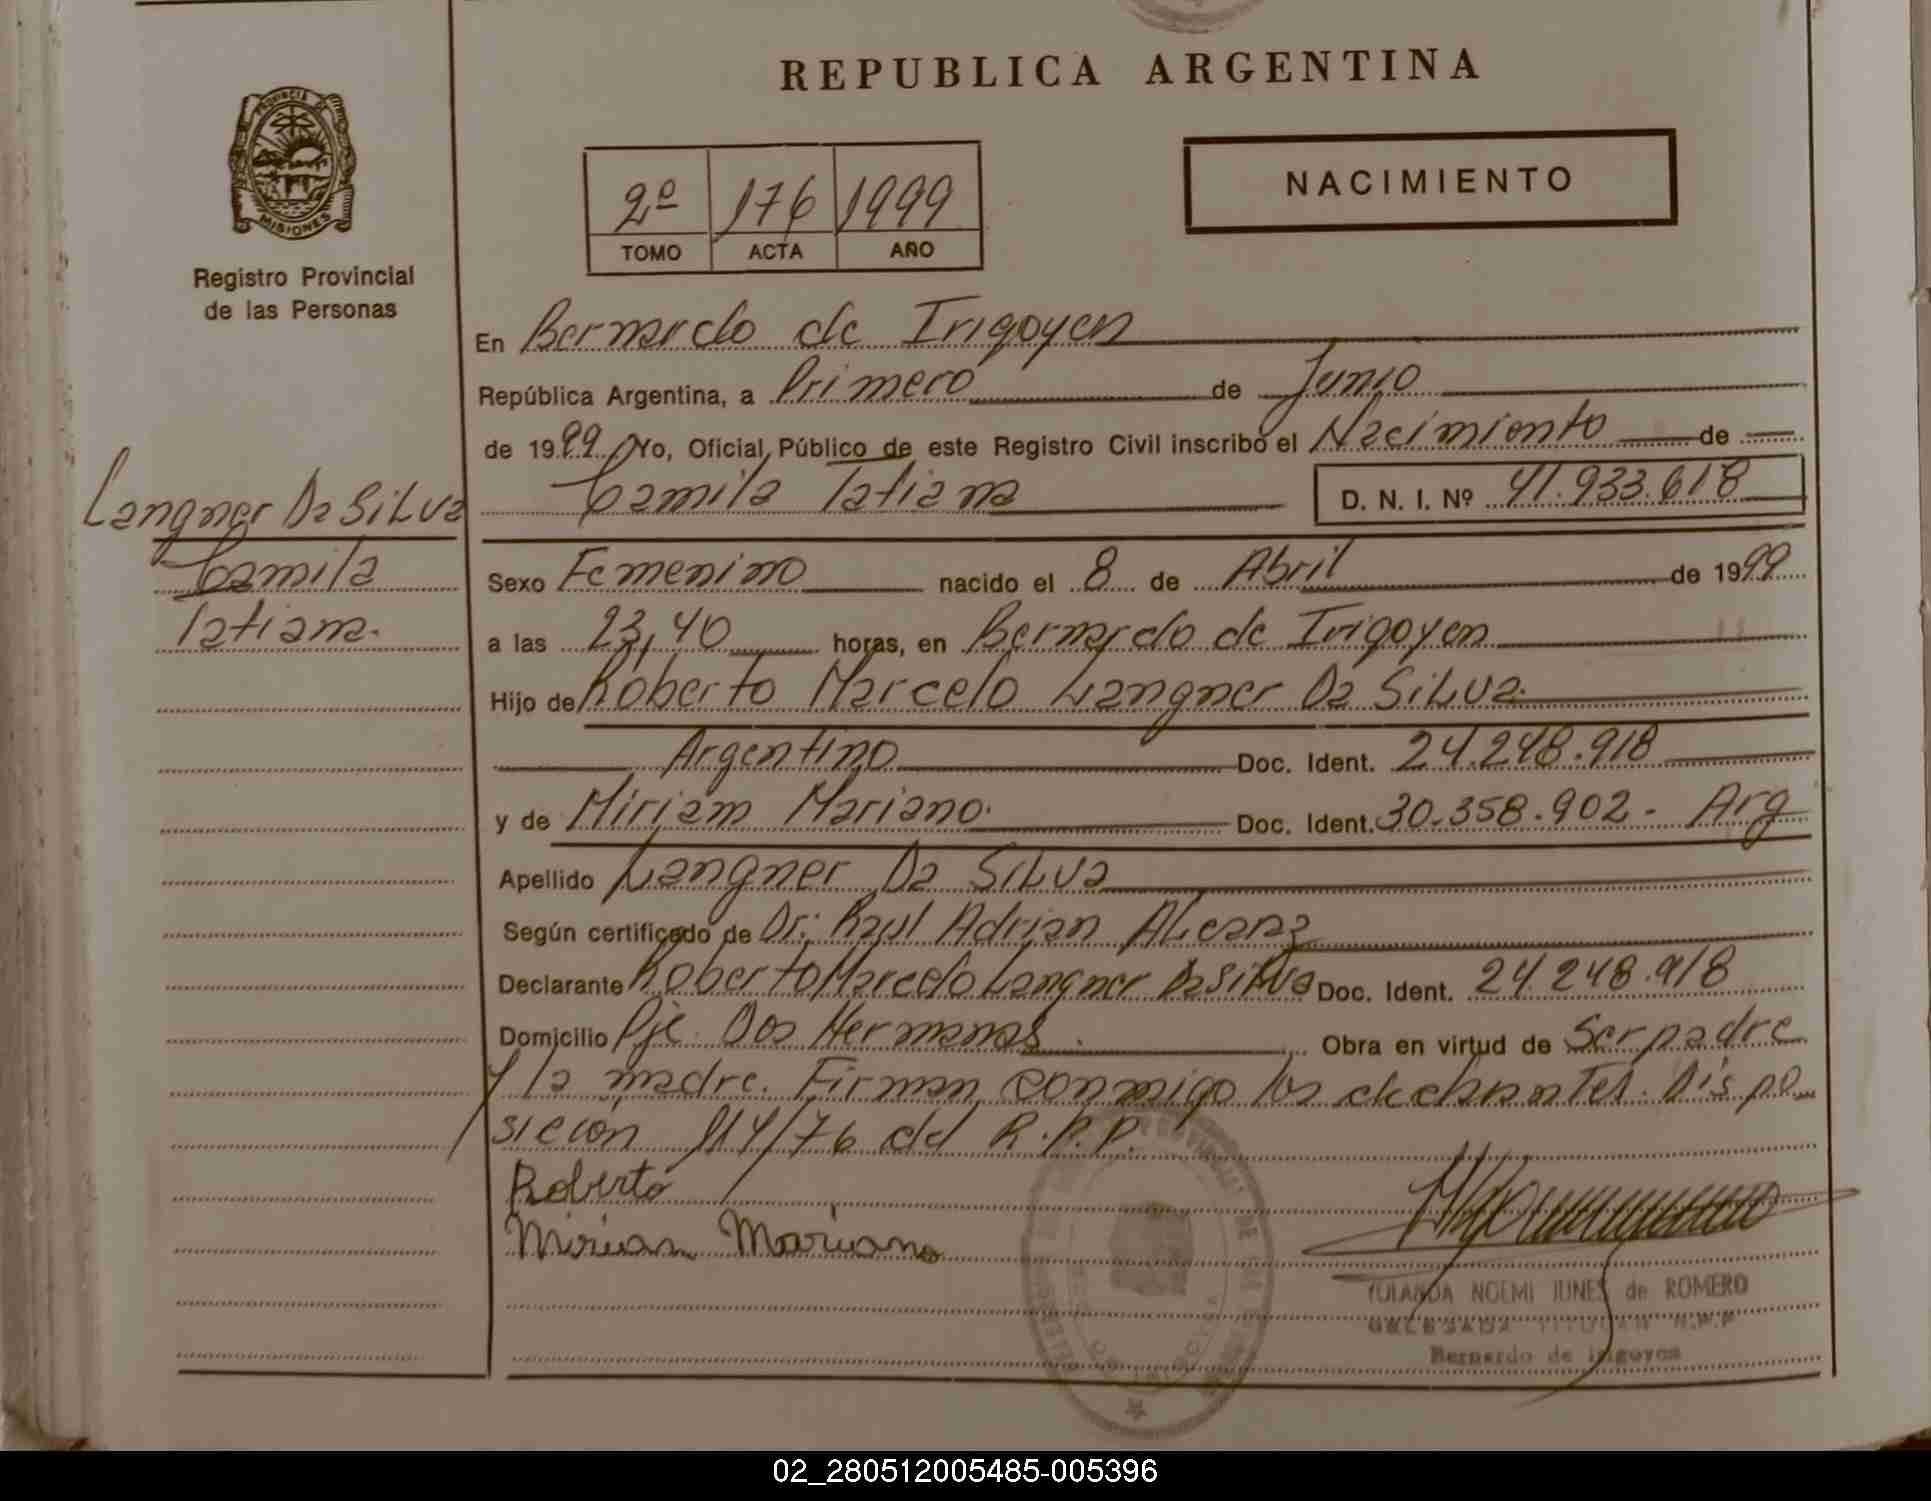 REPUBLICA ARGENTINA
PROVINCIA DE
MISIONES
Registro Provincial
de las Personas
2º 176 1999
TOMO ACTA AÑO
NACIMIENTO
En Bernardo de Irigoyen
República Argentina, a Primero de Junio
de 1999 Yo, Oficial Público de este Registro Civil inscribo el Nacimiento de
Camila Tatiana D. N. I. Nº 41.933.618
Langner Da SiLva
Camila
Tatiana.
Sexo Femenino nacido el 8 de Abril de 1999
a las 23,40 horas, en Bernardo de Irigoyen
Hijo de Roberto Marcelo Langner Da SiLva.
Argentino Doc. Ident. 24.248.918
y de Miriam Mariano. Doc. Ident. 30.358.902 - Arg
Apellido Langner Da SiLva
Según certificado de Dr: Raul Adrian ALcaraz
Declarante Roberto Marcelo Langner Da SiLva Doc. Ident. 24.248.918
Domicilio Pje. Dos Hermanas. Obra en virtud de Ser padre
y la madre. Firman conmigo los declarantes. Dispo
sición 114/76 del R.P.P.
Roberto
Mirian Mariano
YOLANDA NOEMI JUNES de ROMERO
DELEGADA TITULAR R.P.P
Bernardo de Irigoyen
02_280512005485-005396